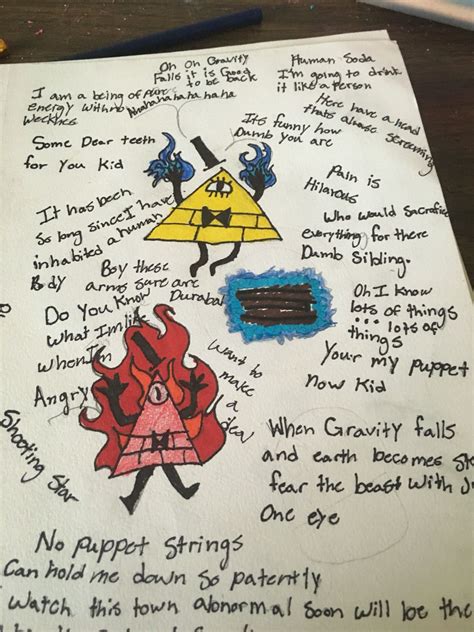 Oh Oh Gravity
Falls it is Good
to be back
Human Soda
I'm going to drink
it like a Person
I am a being of pure
energy with no
weeknes
Mhahahahahahaha
Here have a head
thats always screaming
It's funny how
Dumb you are
Some Dear teeth
for You Kid
Pain is
Hilarous
It has been
so long since I have
inhabited a human
Body
Who would Sacrafice
everything for there
Dumb Sibling.
Boy these
arms sure are
Durabal
Oh I Know
lots of things
... lots of
things
Do You Know
What I'm like
when I'm
Angry
Want to
make
a
deal
Your my puppet
now Kid
Shooting Star
When Gravity falls
and earth becomes
fear the beast with
One eye
No Puppet Strings
Can hold me down so patently
I watch this town abnormal soon will be the